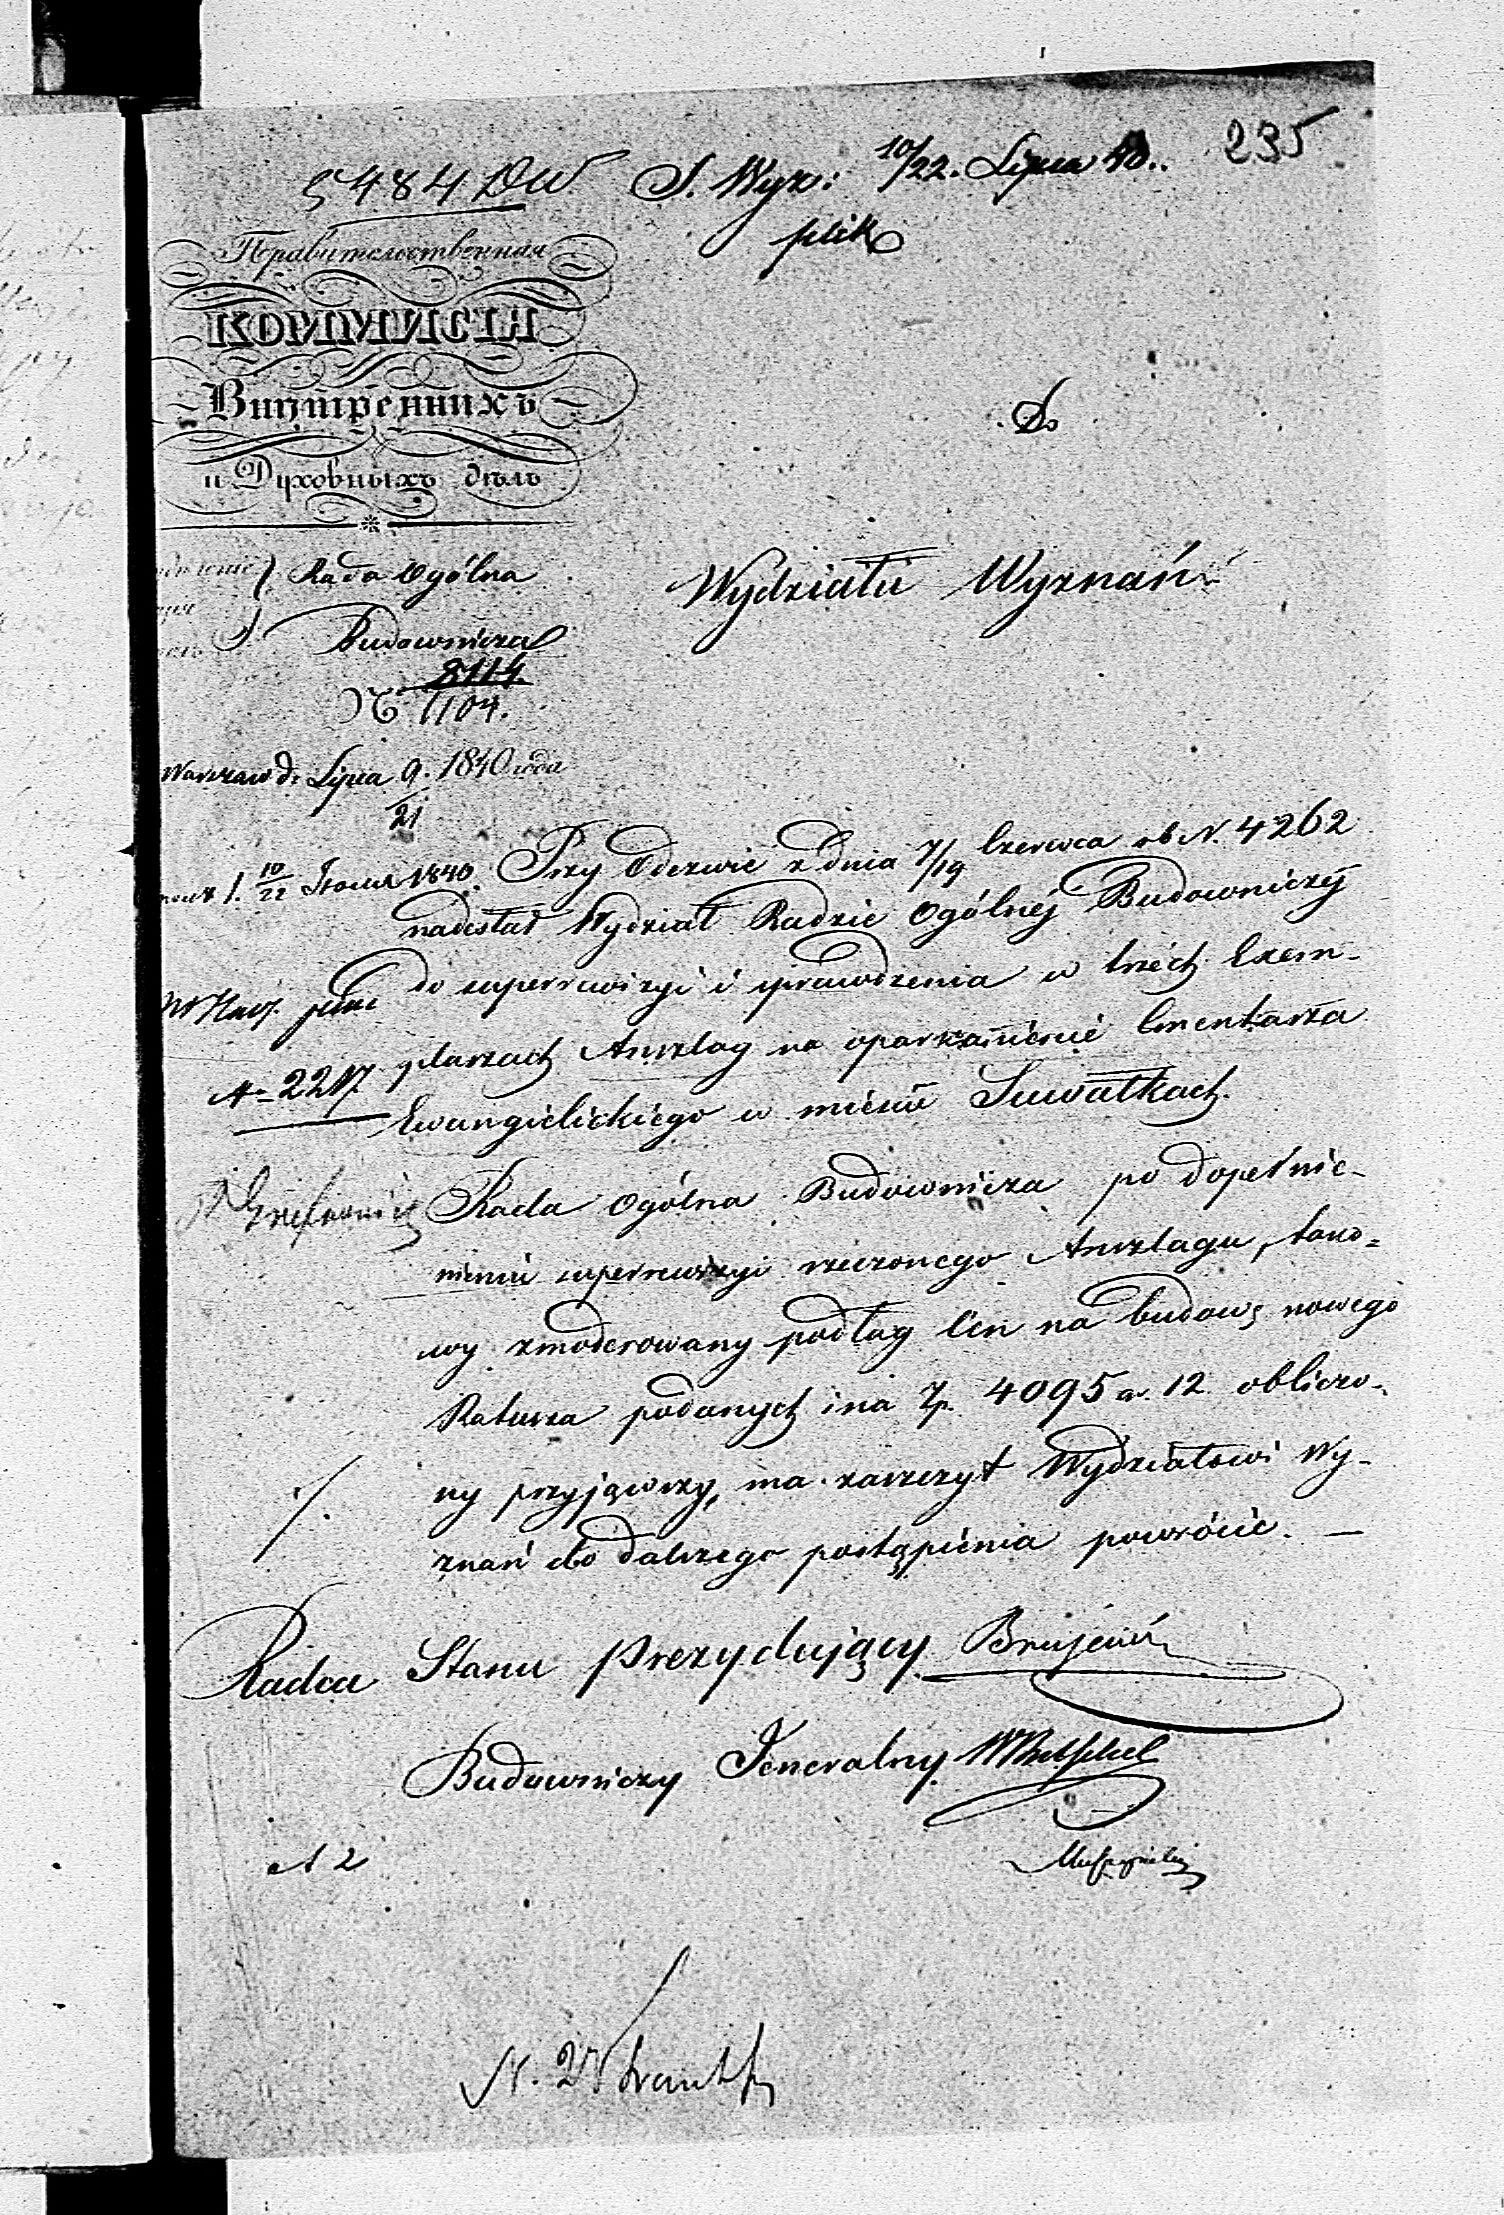 5484 DW S. Wyz: 10/22. Lipca 40.. 235
plik
Правительственная
КОММИСІЯ
Внутреннихъ
и Духовныхъ дѣлъ
Do
Rada Ogólna
Wydziału Wyznań
Budownicza
8114.
N 1104.
Warszaw d. Lipca 9. 1840 года
21
Przy Odezwie z dnia 7/19 Czerwca rb N. 4262
10/22 1840.
nadesłał Wydział Radzie Ogólnéj Budowniczéj
do superrewizyi i sprawdzenia w trzéch Exem-
plarzach Anszlag na oparkanienie Cmentarza
N. 2217
Ewangielickiego w mieście Suwałkach.
Rada Ogólna Budownicza po dopełnie-
nieniu superrewizyi rzeczonego Anszlagu, tako=
wy zmoderowany podług Cen na budowę nowego
Ratusza podanych i na Zp. 4095 gr. 12 obliczo-
ny przyjąwszy, ma zaszczyt Wydziałowi Wy-
znań do dalszego postąpienia powrócić. —
Radca Stanu Prezydujący
Budowniczy Jeneralny
A 2